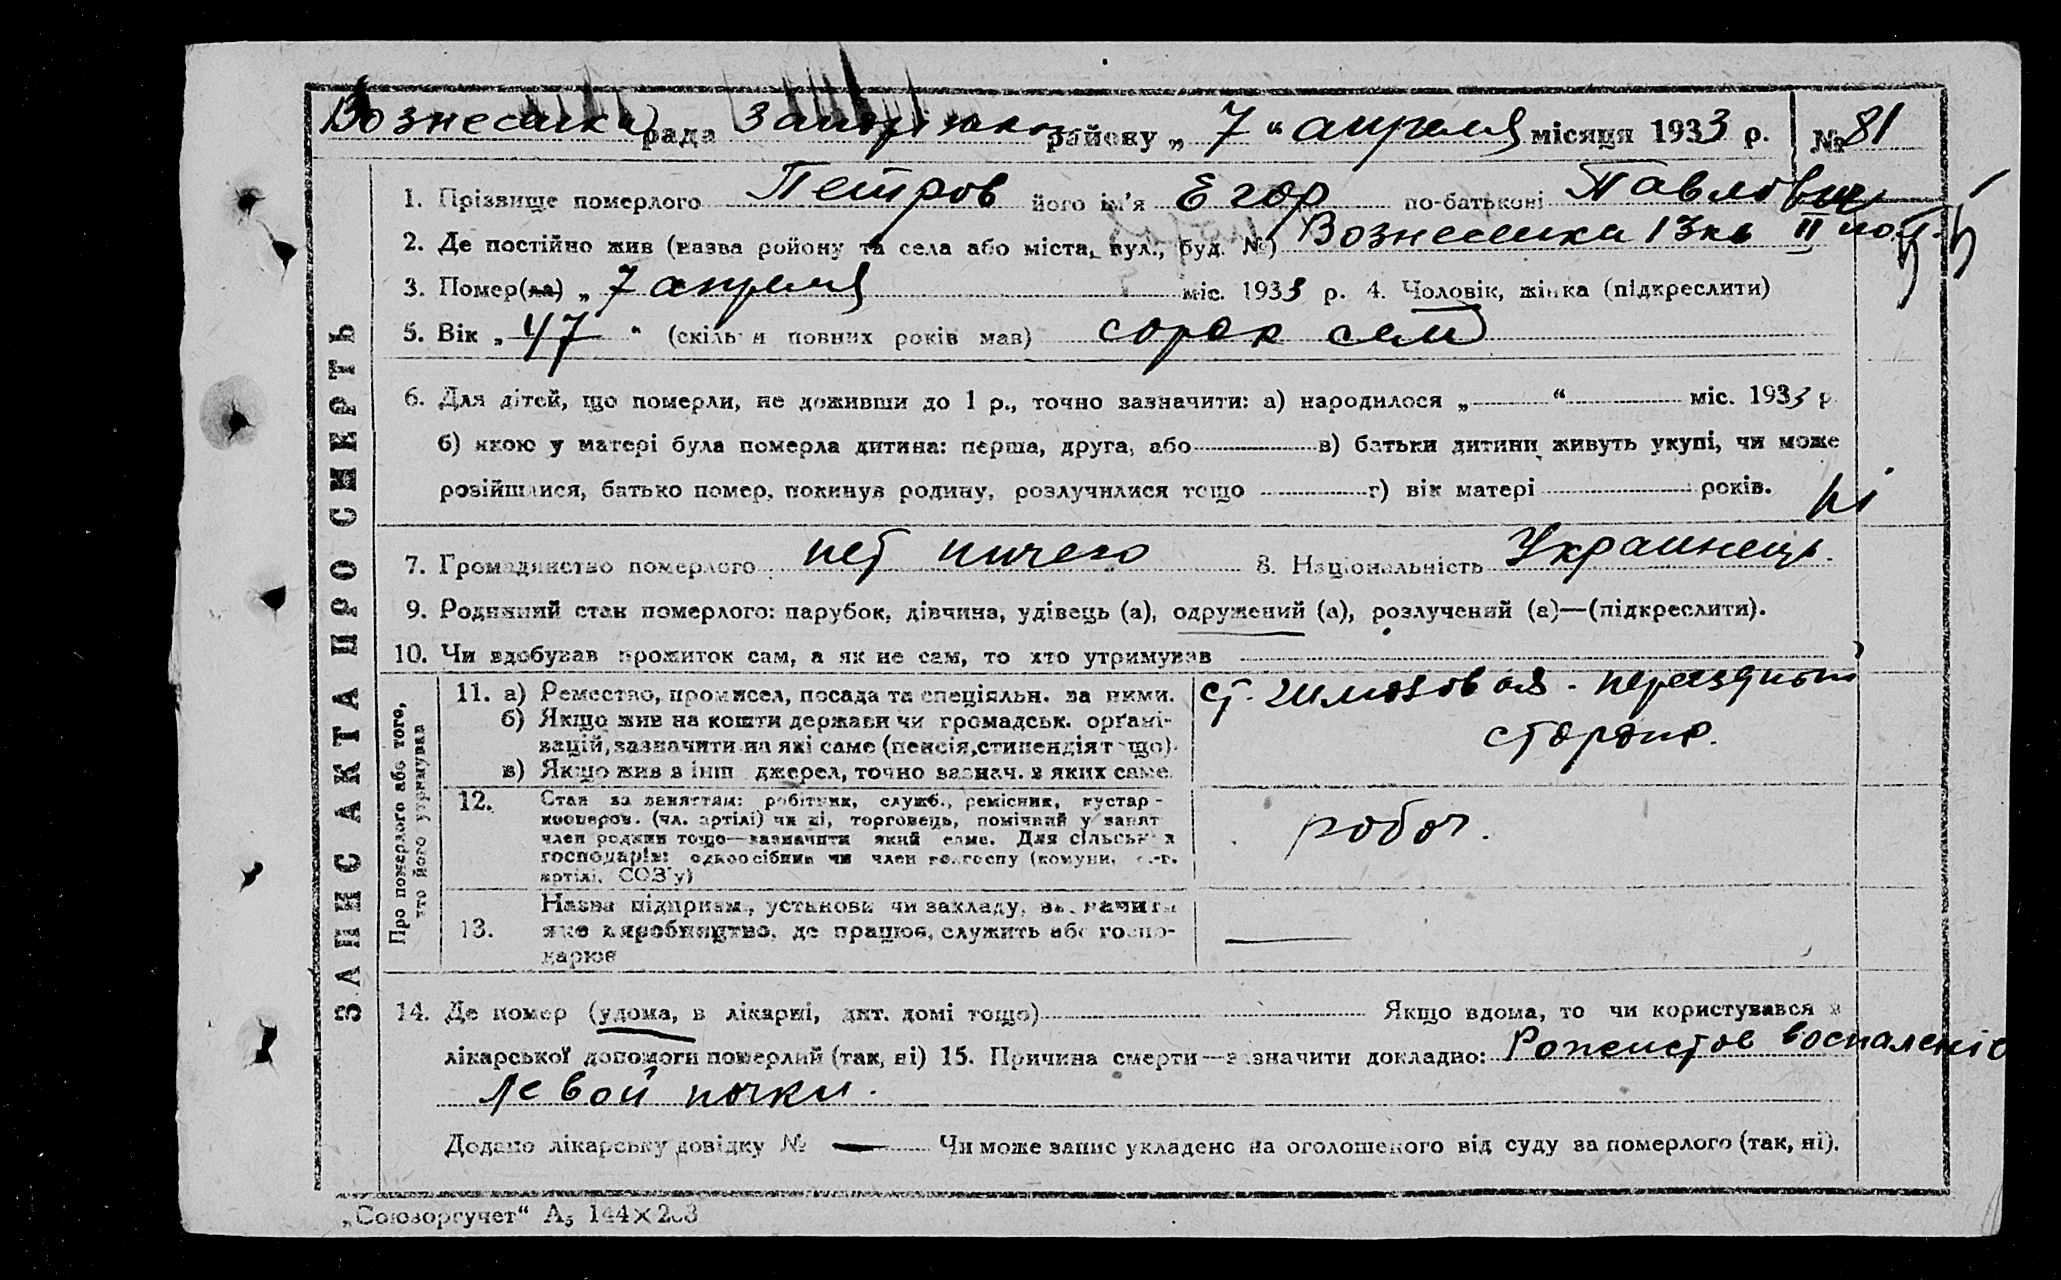 Вознесенка рада Запорізького району „ 7 “ апреля місяця 1933 р. № 81
1. Прізвище померлого Петров його ім'я Егор по-батькові Павлович
2. Де постійно жив (назва району та села або міста, вул., буд. №) Вознесенка 13 кв II
3. Помер(ла) „ 7 апреля міс. 1933 р. 4. Чоловік, жінка (підкреслити)
5. Вік „ 47 “ (скільки повних років мав) сорок сем
6. Для дітей, що померли, не доживши до 1 р., точно зазначити: а) народилося „ “ міс. 1933 р
б) якою у матері була померла дитина: перша, друга, або в) батьки дитини живуть укупі, чи може
розійшлися, батько помер, покинув родину, розлучилися тощо г) вік матері років.
ні
7. Громадянство померлого нет ничего 8. Національність Украинець.
9. Родинний стан померлого: парубок, дівчина, удівець (а), одружений (а), розлучений (а)—(підкреслити).
10. Чи здобував прожиток сам, а як не сам, то хто утримував
ЗАПИС АКТА ПРО СМЕРТЬ
Про померлого або того,
хто його утримував
11. а) Ремество, промисел, посада та спеціяльн. за ними.
б) Якщо жив на кошти держави чи громадськ. органі-
зацій, зазначити на які саме (пенсія, стипендія тощо).
в) Якщо жив з інш джерел, точно зазнач. з яких саме.
ст. переездный
сторож.
12. Стан за заняттям: робітник, служб., ремісник, кустар-
кооперов. (чл. артілі) чи ні, торговець, помічний у занят
член родини тощо—зазначити який саме. Для сільських
господарів: одноосібник чи член колгоспу (комуни, с.-г.
артілі, СОЗ'у)
робоч.
13. Назва підприєм., установи чи закладу, зазначити
яке виробництво, де працює, служить або госпо-
дарює
14. Де помер (удома, в лікарні, дит. домі тощо) Якщо вдома, то чи користувався з
лікарської допомоги померлий (так, ні) 15. Причина смерти—зазначити докладно: воспаленіе
левой почки.
Додано лікарську довідку № — Чи може запис укладено на оголошеного від суду за померлого (так, ні).
„Союзоргучет“ А5 144×203